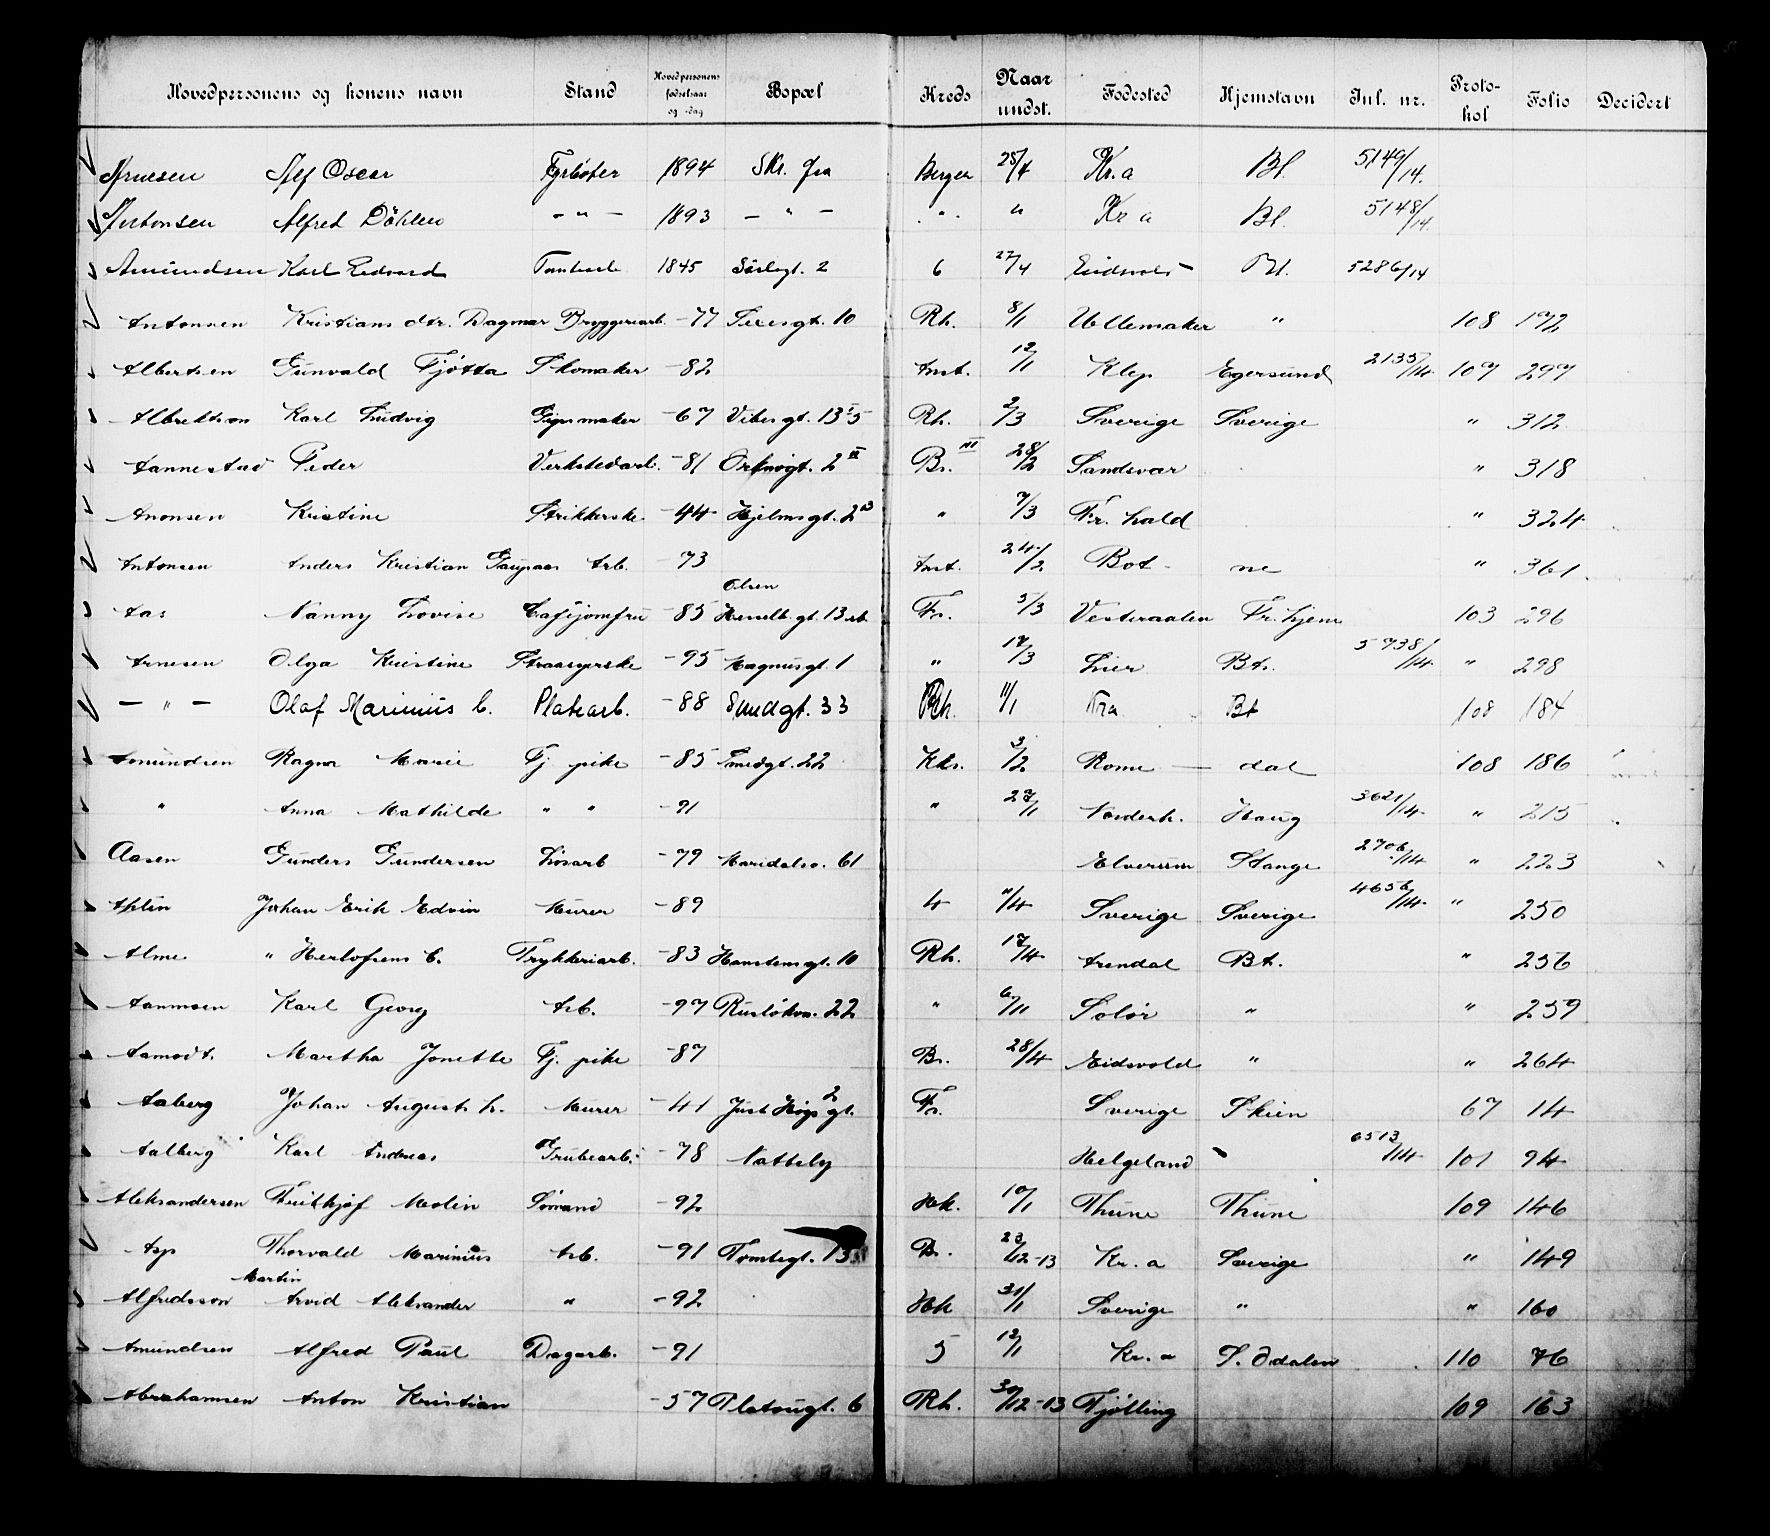 Hovedpersonens og konens navn Stand Hovedpersonens fødselsaar og -dag Bopæl Kreds Naar undst. Fødested Hjemstavn Inl. nr. Proto-kol Folio Decidert
Arnesen Alf Oscar Fyrbøter 1894 Skr. fra Berger 25/4 Kr.a Bt. 5149/14.
Antonsen Alfred Döhlen - " - 1893 - " - " " Kr a Bt. 5148/14.
Amundsen Karl Edvard Tomtearb 1845 Sörligt. 2 6 27/4 Eidsvold Bt. 5286/14
Antonsen Kristians dtr. Dagmar Bryggeriarb. -77 Seresgt. 10 Rh. 8/1 Ullensaker " 108 192
Albertsen Gunvald Fjötta Skomaker -82 Anst. 12/1 Klep Egersund 2135/14 109 299
Albrektson Karl Ludvig Gipsmaker -67 Vibesgt. 13 5 Rh. 2/3 Sverige Sverige " 312
Aannestad Peder Verkstedarb. -81 Orknögt. 2 III Br. III 28/2 Sandsvær " 318
Anonsen Kristine Strikkerske -44 Hjelmsgt. 2 B " 7/3 Fr. hald " 324
Antonsen Anders Kristian Gaupaas Arb. -73 Anst. 24/2 Bot - ne " 361
Aas Nanny Lovise Caféjomfru -85 Olsen Hesselb.gt. 13 Fr. 5/3 Vesteraalen Fr. hjem 103 296
Arnesen Olga Kristine Straasyerske -95 Magnusgt. 1 " 17/3 Lier Bt. 5738/14 " 298
- " - Olaf Marinius C. Platearb. -88 Smedgt. 33 Rh. 11/1 Kra Bt 108 184
Amundsen Ragna Marie Tj. pike -85 Smedgt. 22 Khr. 3/2 Roms - dal 108 186
" Anna Mathilde " " -91 " 27/1 Norderh. Haug 3621/14 " 215
Aasen Gunders Gundersen Løsarb -79 Maridalsv. 61 Elverum Stange 2706/14 " 223
Ahlin Johan Erik Edvin Murer -89 4 11/4 Sverige Sverige 4656/14 " 250
Alme " Herlofsens C. Trykkeriarb. -83 Hanstensgt. 10 Rh. 17/4 Arendal Bt. " 256
Aanmsen Karl Georg Arb. -97 Rusløkvn. 22 " 6/11 Solør " " 259
Aamodt. Martha Jonette Tj. pike -87 Br. 28/4 Eidsvold " " 264
Aaberg Johan August h. Murer -41 Just Høgs gt. 2 Fr. Sverige Skien 67 14
Aalberg Karl Andreas Grubearb. -78 Nattely Helgeland " 6513/14 101 94
Aleksandersen Fridthjof Molin Sömand -92 Hk. 10/1 Thune Thune 109 146
Asp Thorvald Marinius Arb. -91 Tomtegt. 13 Br. 23/12-13 Kr. a Sverige " 149
Alfredsson Martin Arvid Aleksander " -92 Hk 31/1 Sverige " " 160
Amundsen Alfred Paul Dagarb. -91 5 12/1 Kr. a S. Odalen 110 76
Abrahamsen Anton Kristian -57 Platougt. 6 Rh. 30/12-13 Tjølling 109 163